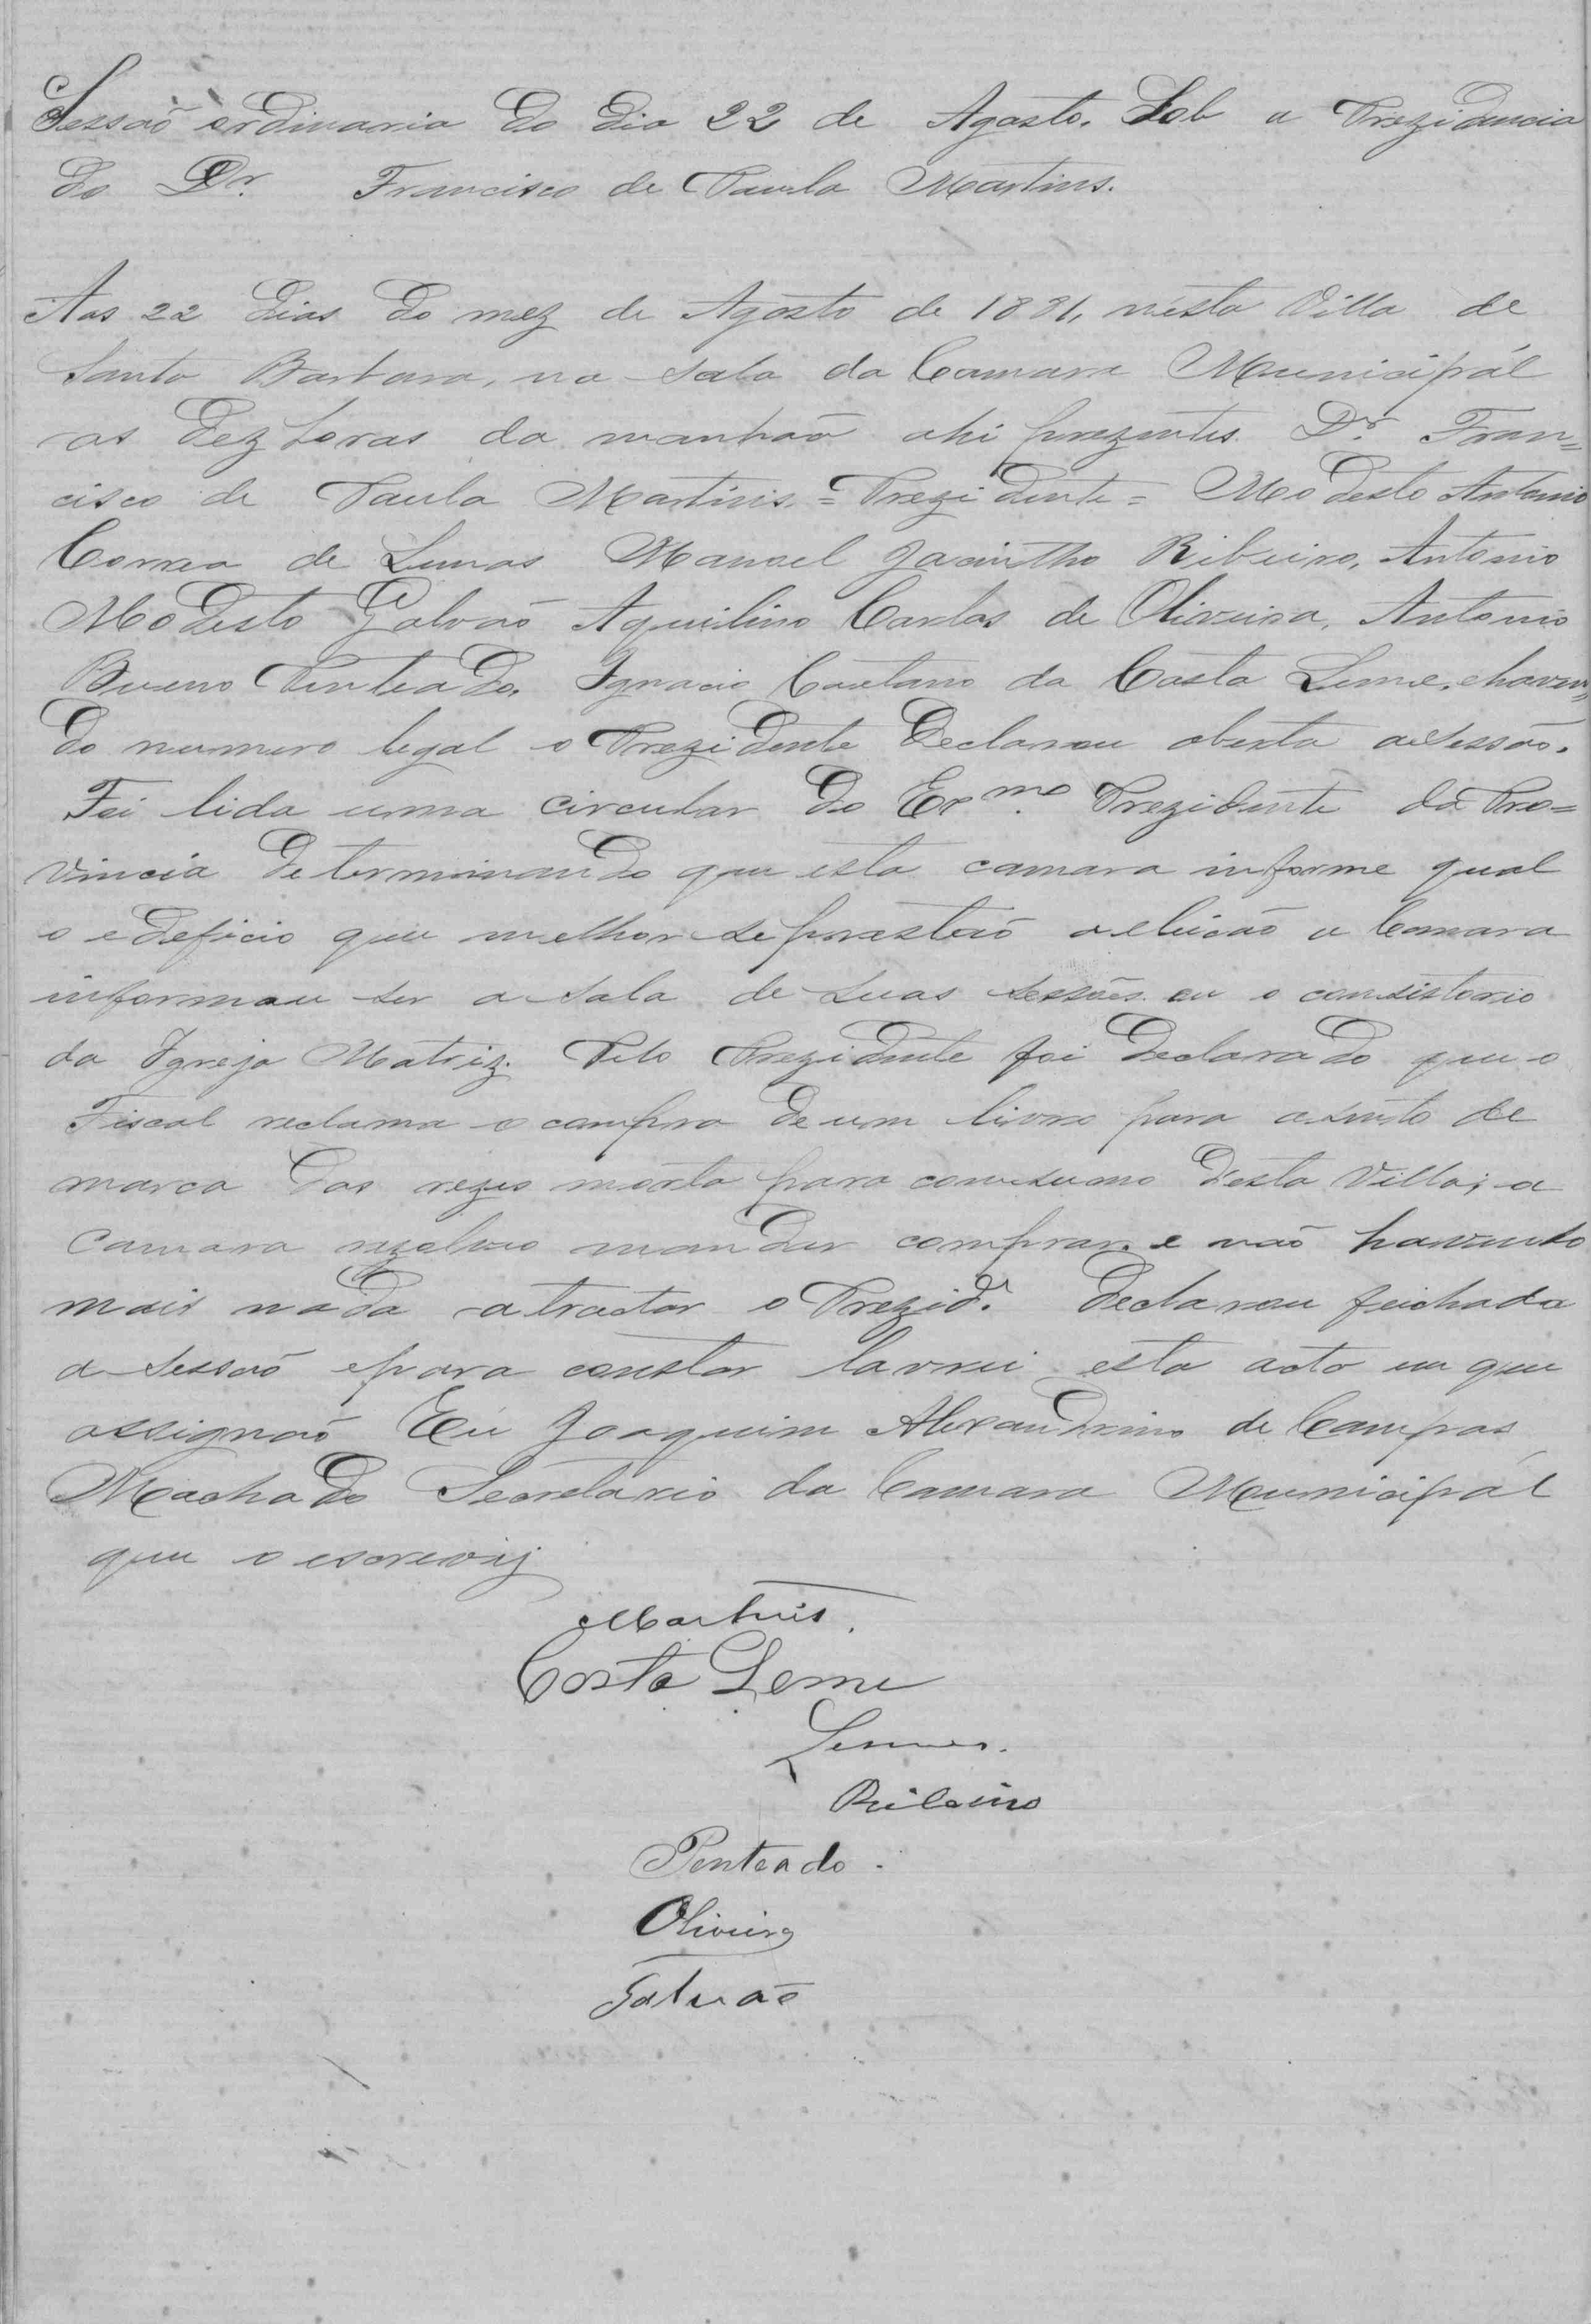 Sessaõ ordinaria do dia 22 de Agosto. Sob a Prezidencia
do Dr. Francisco de Paula Martins.
Aos 22 dias do mez de Agosto de 1881, nésta Villa de
Santa Barbara, na sala da Camara Municipál
as dez horas da manhaã ahi prezentes Dr. Fran=
cisco de Paula Martins = Prezidente = Modesto Antonio
Correa de Lemos Manoel Jacintho Ribeiro, Antonio
Modesto Galvaõ Aquilino Carlos de Oliveira, Antonio
Bueno Penteado. Ignacio Caetano da Costa Leme, haven=
do numero legal o Prezidente declarou aberta a sessaõ.
Foi lida uma circular do Exmo. Prezidente da Pro=
vincia determinando que esta camara informe qual
o edeficio que melhor se prestaõ a eleicaõ a Camara
informou ser a sala de suas sessões ou o consistorio
da Igreja Matriz. Pelo Prezidente foi declarado que o
Fiscal reclama a compra de um livro para acento de
marca das rezes morta para consumo desta Villa; a
Camara rezolveo mander comprar. e naõ havendo
mais nada a tractar o Prezide. declarou feichada
a sessaõ e para constar lavrei esta acta em que
assignaõ Eu Joaquim Alexandrino de Campos
Machado Secretario da Camara Municipál
que o escrevij
Martins.
Costa Leme
Lemos.
Ribeiro
Penteado.
Oliveira
Galvaõ